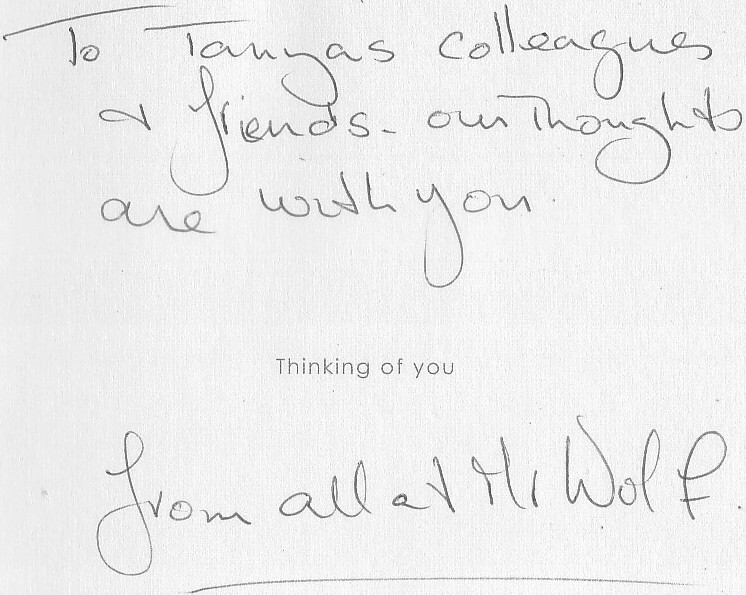 To Tanyas colleagues
& friends - our Thoughts
are with you.
Thinking of you
from all at Mr Wolf.